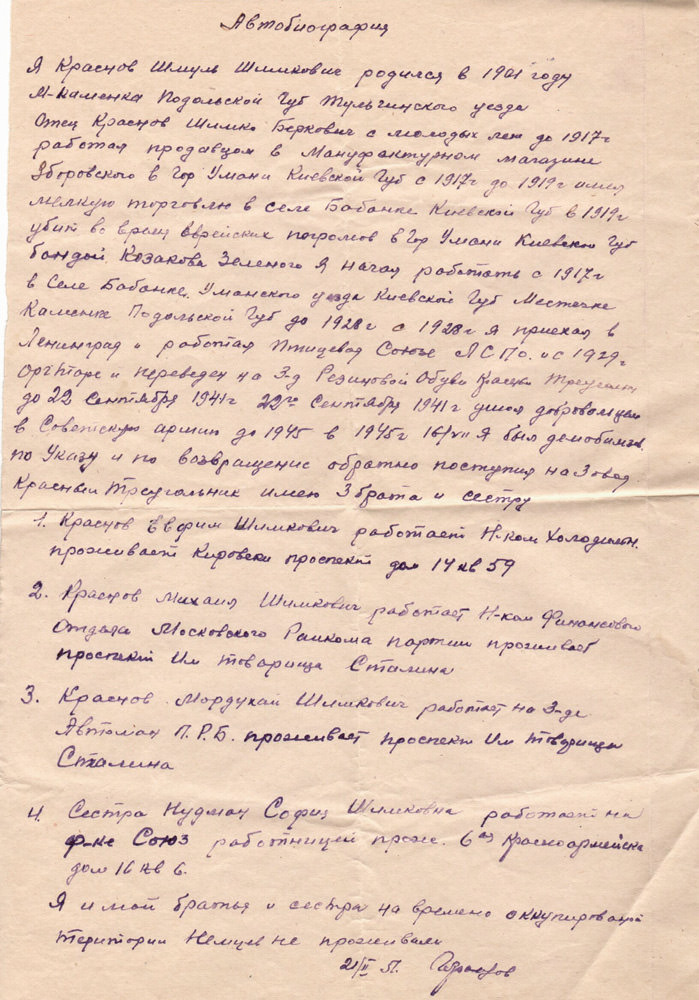 Автобиография
Я Краснов Шмуль Шимкович родился в 1901 году
М-Каменка Подольской Губ Тульчинского уезда
Отец Краснов Шимко Беркович с молодых лет до 1917г
работал продавцом в Мануфактурном магазине
Зборовского в Гор Умани Киевской Губ с 1917г до 1919г имел
мелкую торговлю в селе Бабанке Киевской Губ в 1919г
убит во время Еврейских погромов в Гор Умани Киевской Губ
бандой Козакова Зеленого Я начал работать с 1917г
в Селе Бабанке. Уманского уезда Киевской Губ Местечке
Каменке Подольской Губ до 1928г с 1928г Я приехал в
Ленинград и работал Птицевод Союзе ЛСПО. и с 1929г
Оргтаре и переведен на З-д Резиновой Обуви Красный Треугольн
до 22 Сентября 1941г 22го Сентября 1941г ушол добровольцем
в Советскую армию до 1945 в 1945г 16/VII Я был демобилизов.
по Указу и по возвращение обратно поступил на Завод
Красный Треугольник имею 3 брата и сестру
1. Краснов Евфим Шимкович работает Н-ком Холодильн.
проживает Кировски проспект дом 14 кв 59
2. Краснов Михаил Шимкович работает Н-ком Финансового
Отдала Московского Раикома партии проживает
проспект Им товарища Сталина
3. Краснов Мордухай Шимкович работает на З-де
Автоман П.Р.Б. проживает проспект Им Товарища
Сталина
4. Сестра Нудман Софиз Шимковна работает на
ф-ке Союз работницей прож. 6ая Красноармейска
дом 16 кв 6.
Я и мои братья и сестра на времено оккупированой
територии Немцев не проживали
21/II Л. Краснов